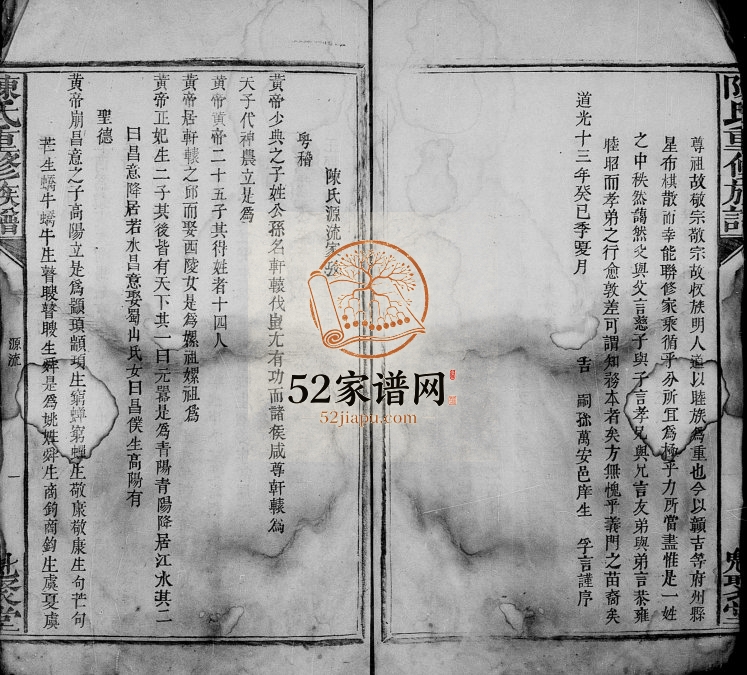 尊祖故敬宗敬宗故收族明人道以睦族爲重也今以贛吉等府州縣
星布棋散而幸能聯修家乘循乎分所宜爲極乎力所當盡惟是一姓
之中秩然藹然父與父言慈子與子言孝兄與兄言友弟與弟言恭雍
睦昭而孝弟之行愈敦差可謂知務本者矣方無愧乎義門之苗裔矣
道光十三年癸巳季夏月
嗣孫萬安邑庠生 孚言謹序
陳氏重修族譜
陳氏源流
粤稽
黃帝少典之子姓公孫名軒轅伐蚩尤有功而諸侯咸尊軒轅爲
天子代神農立是爲
黃帝黃帝二十五子其得姓者十四人
黃帝居軒轅之邱而娶西陵女是爲嫘祖嫘祖爲
黃帝正妃生二子其後皆有天下其一曰元囂是爲青陽青陽降居江水其二
曰昌意降居若水昌意娶蜀山氏女曰昌僕生高陽有
聖德
黃帝崩昌意之子高陽立是爲顓頊顓頊生窮蟬窮蟬生敬康敬康生句芒句
芒生蟜牛蟜牛生瞽瞍瞽瞍生舜是爲姚姓舜生商鈞商鈞生虞夏虞
陳氏重修族譜
源流
一
聚堂
52家谱网
52jiapu.com